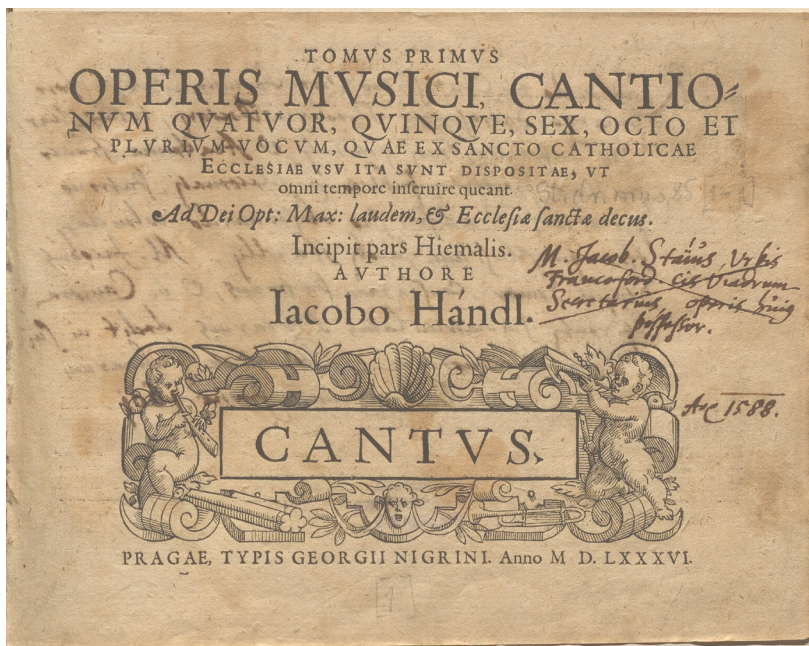 TOMVS PRIMVS
OPERIS MVSICI, CANTIO=
NVM QVATVOR, QVINQVE, SEX, OCTO ET
PLVRIVM VOCVM, QVAE EX SANCTO CATHOLICAE
ECCLESIAE VSV ITA SVNT DISPOSITAE, VT
omni tempore inſeruire queant.
Ad Dei Opt: Max: laudem, & Eccleſiæ ſanctæ decus.
Incipit pars Hiemalis.
AVTHORE
Iacobo Hándl.
M. Jacob. Staius, Urbis
Francoford. cis Viadrum
Secretarius, operis huius
possessor.
1588.
CANTVS.
PRAGAE, TYPIS GEORGII NIGRINI. Anno M D. LXXXVI.